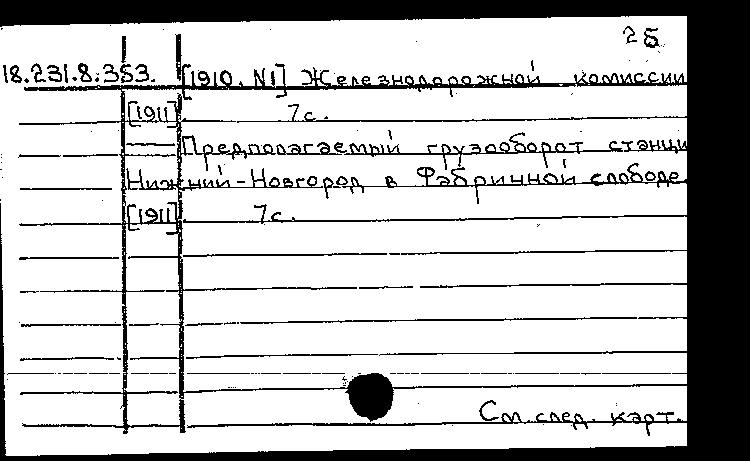 25
18.231.8.353. [1910. N1] Железнодорожной комиссии
[1911]. 7с.
— Предполагаемый грузооборот станци
Нижний-Новгород в Фабричной слободе.
[1911]. 7с.
См. след. карт.